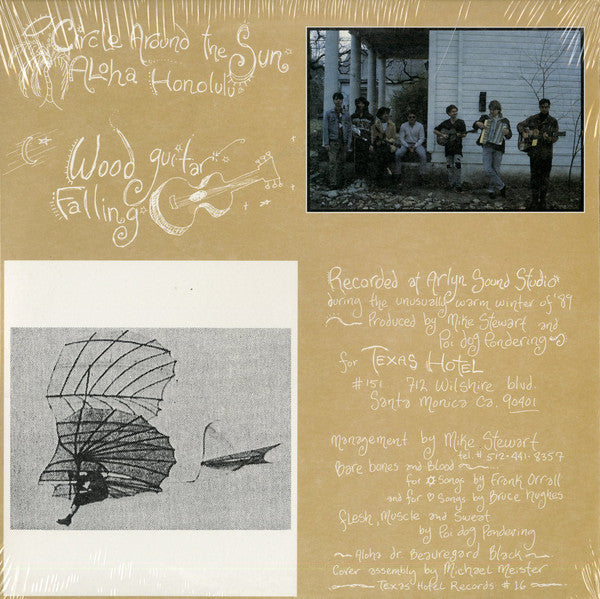 Circle Around the Sun
Aloha Honolulu
Wood guitar
Falling
Recorded at Arlyn Sound Studio
during the unusually warm winter of '89
Produced by Mike Stewart and
Poi dog Pondering
for Texas Hotel
#151 712 Wilshire blvd.
Santa Monica Ca. 90401
management by Mike Stewart
tel # 512-441-8357
Bare bones and Blood
for ☼ Songs by Frank Orrall
and for ♡ Songs by Bruce Hughes
flesh, Muscle and Sweat
by Poi dog Pondering
~ Aloha dr. Beauregard Black ~
Cover assembly by Michael Meister
~ Texas Hotel Records #16 ~